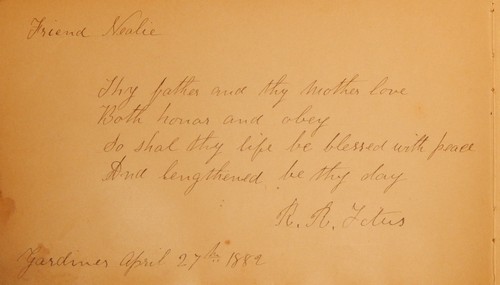 Friend Nealie
Thy father and thy mother love
Both honar and obey
So shal thy life be blessed with peace
And lengthened be thy day
R. R. Titus
Gardiner April 27th 1882